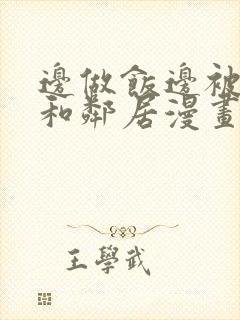 邊做飯邊被
和鄰居漫畫
王學武